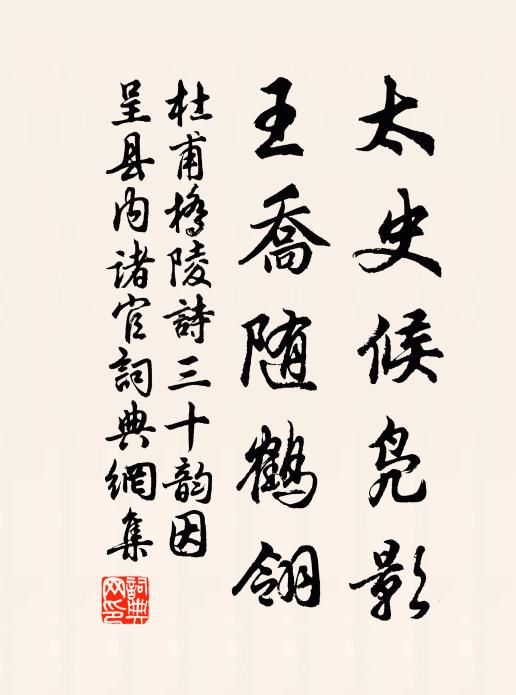 太史候凫影
王喬随鶴翎
杜甫橋陵詩三十韵因
呈县内诸官詞典網集